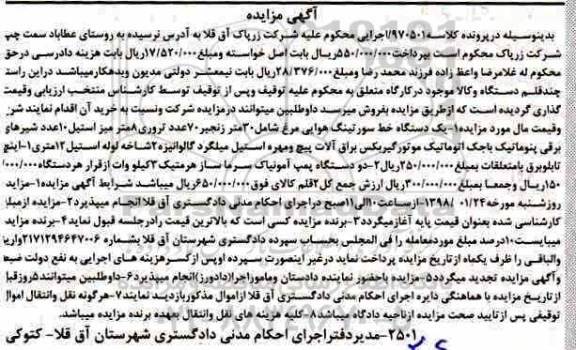 آگهی مزایده
بدینوسیله درپرونده کلاسه ۹۷۰۵۰۱/اجرایی محکوم علیه شرکت زرپاک آق قلا به آدرس نرسیده به روستای عطاباد سمت چپ
شرکت زرپاک محکوم است بپرداخت ۵۵۰/۰۰۰/۰۰۰ریال بابت اصل خواسته ومبلغ ۱۷/۵۲۰/۰۰۰ریال بابت هزینه دادرسی درحق
محکوم له غلامرضا واعظ زاده فرزند محمد رضا ومبلغ ۲۸/۳۷۶/۰۰۰ریال بابت نیمعشر دولتی مدیون وبدهکارمیباشد دراین راستا
چندقلم دستگاه وکالا موجود درکارگاه متعلق به محکوم علیه توقیف وپس از توقیف توسط کارشناس منتخب ارزیابی وقیمت
گذاری گردیده است که ازطریق مزایده بفروش میرسد داوطلبین میتوانند درمزایده شرکت ونسبت به خرید آن اقدام نمایند شرح
وقیمت مال مورد مزایده ۱-یک دستگاه خط سورتینگ هوایی مرغ شامل ۳۰متر زنجیر ۷۰عدد تروری ۸متر میز استیل ۱۰عدد شیرهای
برقی پنوماتیک باجک اتوماتیک موتورگیربکس براق آلات پیچ ومهره استیل میلگرد گالوانیزه ۲شاخه لوله استیل ۱۲متری ۱-اینچ
تابلوبرق بامتعلقات بمبلغ ۲۵۰/۰۰۰/۰۰۰ریال ۲-دو دستگاه پمپ آمونیاک سرما ساز هرمتیک ۳کیلو وات ازقرار هردستگاه ۰۰۰/۰۰۰/
۱۵۰ریال وجمعا بمبلغ ۳۰۰/۰۰۰/۰۰۰ریال ارزش جمع کل ۲قلم کالای فوق ۶۵۰/۰۰۰/۰۰۰ریال میباشد شرایط آگهی مزایده ۱-مزاید
روزشنبه مورخه ۱۳۹۸/۰۱/۲۴-ازساعت ۱۰الی ۱۱صبح دراجرای احکام مدنی دادگستری آق قلا انجام میپذیرد ۲-مزایده ازمبلغ
کارشناسی شده بعنوان قیمت پایه آغازمیگردد ۳-برنده مزایده کسی است که بالاترین قیمت رادرجلسه قبول نماید ۴-برنده مزایده
میبایست ۱۰درصد مبلغ موردمعامله را فی المجلس بحساب سپرده دادگستری شهرستان آق قلا بشماره ۲۱۷۱۲۹۴۶۴۷۰۰۶واریز
والباقی را ظرف یکماه از تاریخ مزایده پرداخت نماید درغیر اینصورت سپرده اوپس ازکسرهزینه های اجرایی به نفع دولت ضبط
وآگهی مزایده تجدید میگردد ۵-مزایده باحضور نماینده دادستان وماموراجرا(دادورز)انجام میپذیرد ۶-داوطلبین میتوانند ۵روزقبل
ازتاریخ مزایده با هماهنگی دایره اجرای احکام مدنی دادگستری آق قلا ازاموال مذکوربازدید نمایند ۷-هرگونه نقل وانتقال اموال
توقیفی پس ازتایید صحت مزایده ازناحیه دادگاه میباشد ۸-کلیه هزینه های نقل وانتقال بعهده برنده مزایده میباشد.
۲۵۰۱-مدیردفتراجرای احکام مدنی دادگستری شهرستان آق قلا- کتوکی